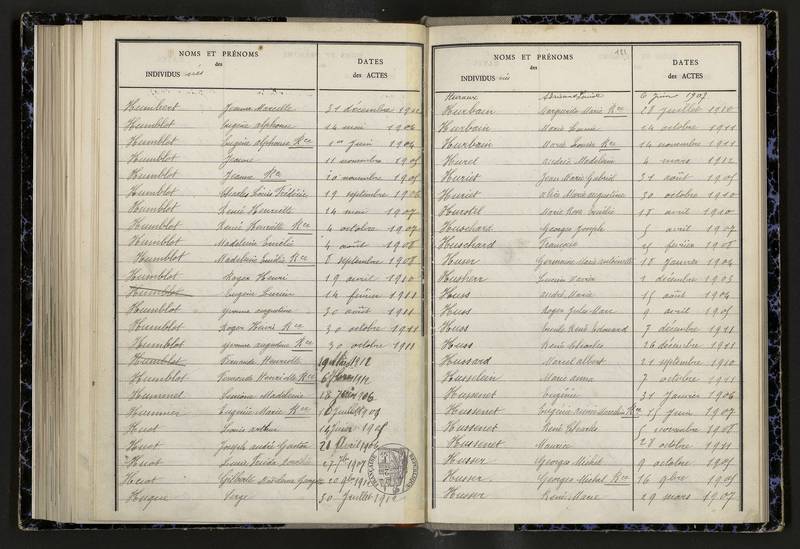 NOMS ET PRÉNOMS
des
INDIVIDUS nés
DATES
des ACTES
Humbert Jeanne Marcelle 31 décembre
Humblot Eugénie alphonse 14 mai 1904
Humblot Eugénie alphonse Rce 1er juin 1904
Humblot Jeanne 11 novembre 1905
Humblot Jeanne Rce 20 novembre 1905
Humblot Charles Louis Frédéric 19 septembre 1906
Humblot Renée Henriette 24 mai 1907
Humblot Renée Henriette Rce 4 octobre 1907
Humblot Madeleine Emélie 4 août 1908
Humblot Madeleine Emélie Rce 8 septembre 1908
Humblot Roger Henri 19 avril 1910
Humblot Eugène Lucien 14 février 1911
Humblot Yvonne augustine 30 août 1911
Humblot Roger Henri Rce 30 octobre 1911
Humblot Yvonne augustine Rce 30 octobre 1911
Humblot Fernande Henriette 1912
Humblot Fernande Henriette Rce 1912
Hummel Simone Madeleine 1906
Hummer Eugénie Marie Rce Juillet 1909
Huot Louis arthur 1905
Huot Joseph andré Gaston Avril
Huot Louise 1907
Huot Gilberte Madeleine
Hugue Serge 30 Juillet
RÉPUBLIQUE FRANÇAISE
121
NOMS ET PRÉNOMS
des
INDIVIDUS nés
DATES
des ACTES
Huraux Adrienne Louise 6 juin 1903
Hurbain Marguerite Marie Rce 28 juillet 1910
Hurbain Marie Louise 24 octobre 1911
Hurbain Marie Louise Rce 14 novembre 1911
Hurel andrée Madeleine 4 mars 1912
Huriet Jean Marie Gabriel 31 août 1905
Huriet alice Marie augustine 30 octobre 1910
Marie Rose Emélie 18 avril 1910
Huschard Georges Joseph 5 avril 1907
Huschard François février 1908
Huser Germaine Marie antoinette 18 janvier 1904
Husherr Lucien Xavier 2 décembre 1903
Huss andré Marie 15 août 1904
Huss Roger Jules Marc 9 avril 1905
Huss Emile René Edouard 7 décembre 1911
Huss René Charles 26 décembre 1911
Hussard Marcel albert 21 septembre 1910
Husselein Marie anna 7 octobre 1911
Hussenet Eugénie 31 janvier 1906
Hussenet Eugénie Rce 15 juin 1907
Hussenet René Charles 5 novembre 1908
Hussenet Maurice 28 octobre 1911
Husser Georges Michel 9 octobre 1905
Husser Georges Michel Rce 16 9bre 1905
Husser René Marie 29 mars 1907